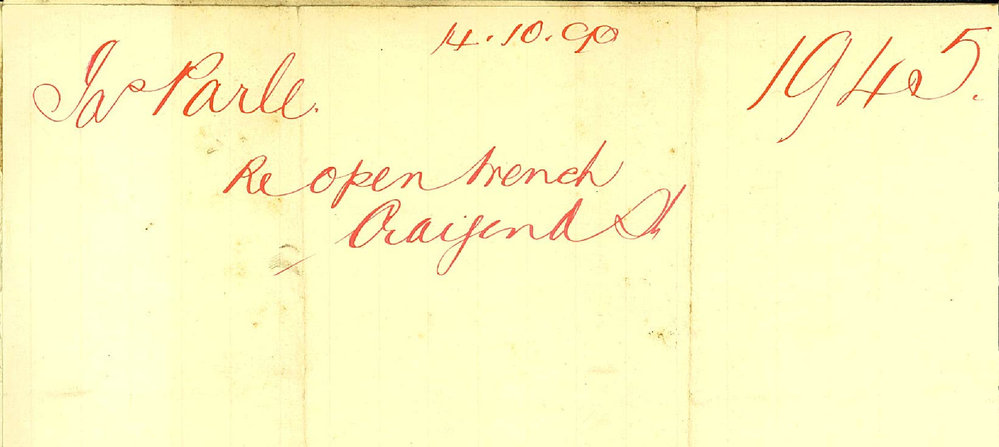 14.10.90
Jas Parle. 1945.
Re open trench
Craigend St